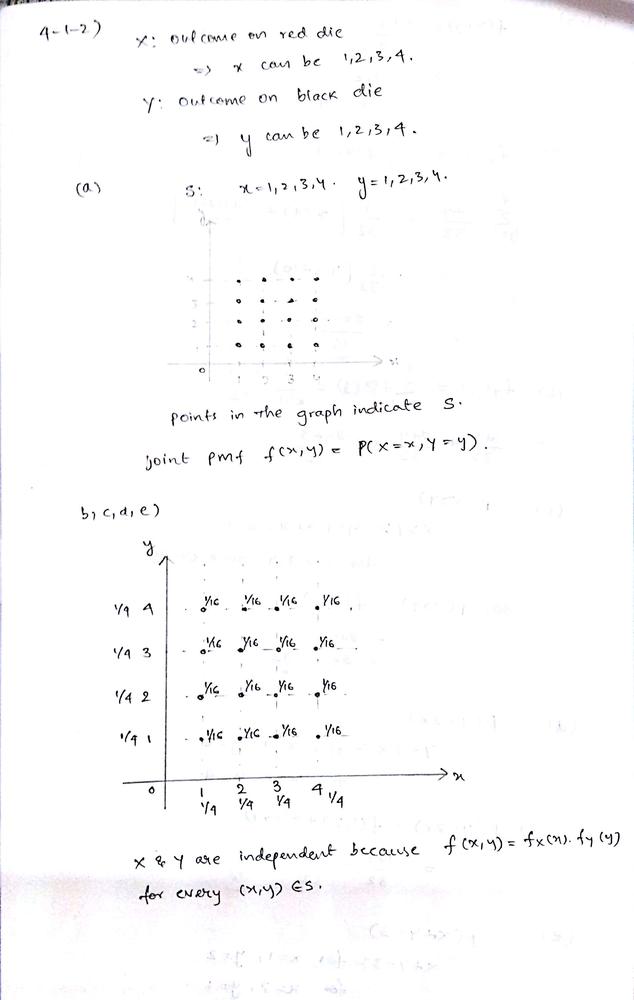 4-1-2) X: outcome on red die
=> x can be 1,2,3,4.
Y: outcome on black die
=> y can be 1,2,3,4.
(a) S: x=1,2,3,4. y=1,2,3,4.
y
4
3
2
0 1 2 3 4 x
points in the graph indicate S.
joint pmf f(x,y) = P(X=x, Y=y).
b, c, d, e)
y
1/4 4 1/16 1/16 1/16 1/16
1/4 3 1/16 1/16 1/16 1/16
1/4 2 1/16 1/16 1/16 1/16
1/4 1 1/16 1/16 1/16 1/16
0 1 2 3 4 x
1/4 1/4 1/4 1/4
X & Y are independent because f(x,y) = fx(x). fy(y)
for every (x,y) ∈ S.